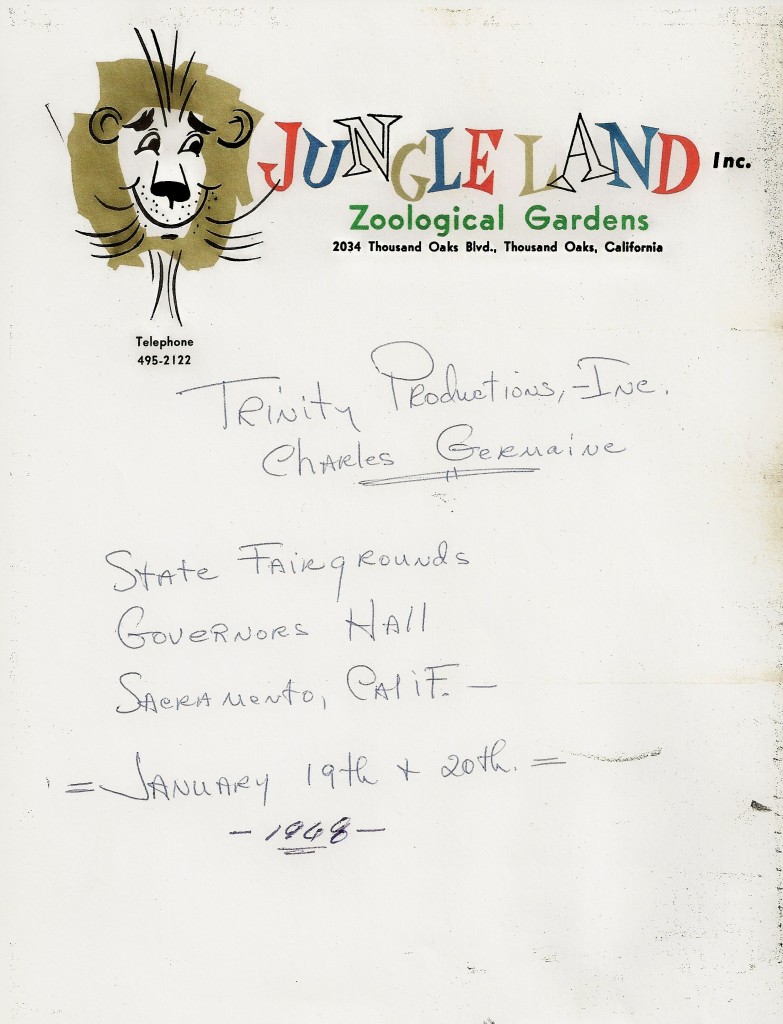 JUNGLE LAND Inc.
Zoological Gardens
2034 Thousand Oaks Blvd., Thousand Oaks, California
Telephone
495-2122
Trinity Productions, Inc.
Charles Germaine
State Fairgrounds
Governors Hall
Sacramento, Calif. -
= January 19th & 20th. =
- 1968 -